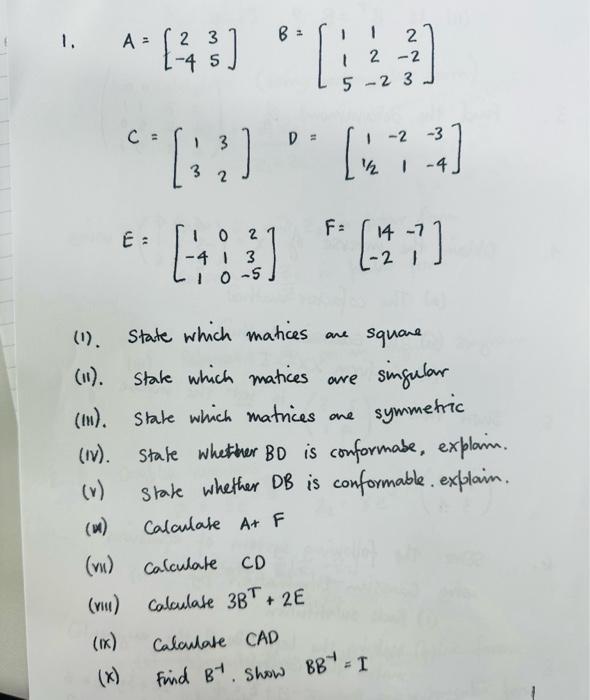 1. A = [ 2 3 B = [ 1 1 2
-4 5 ] 1 2 -2
5 -2 3 ]
C = [ 1 3 D = [ 1 -2 -3
3 2 ] 1/2 1 -4 ]
E = [ 1 0 2 F = [ 14 -7
-4 1 3 -2 1 ]
1 0 -5 ]
(i). State which matices are square
(ii). State which matices are singular
(iii). State which matrices are symmetric
(iv). State whether BD is conformabe, explain.
(v) State whether DB is conformable. explain.
(vi) Calculate A+ F
(vii) Calculate CD
(viii) Calculate 3Bᵀ + 2E
(ix) Calculate CAD
(x) Find B⁻¹. Show BB⁻¹ = I